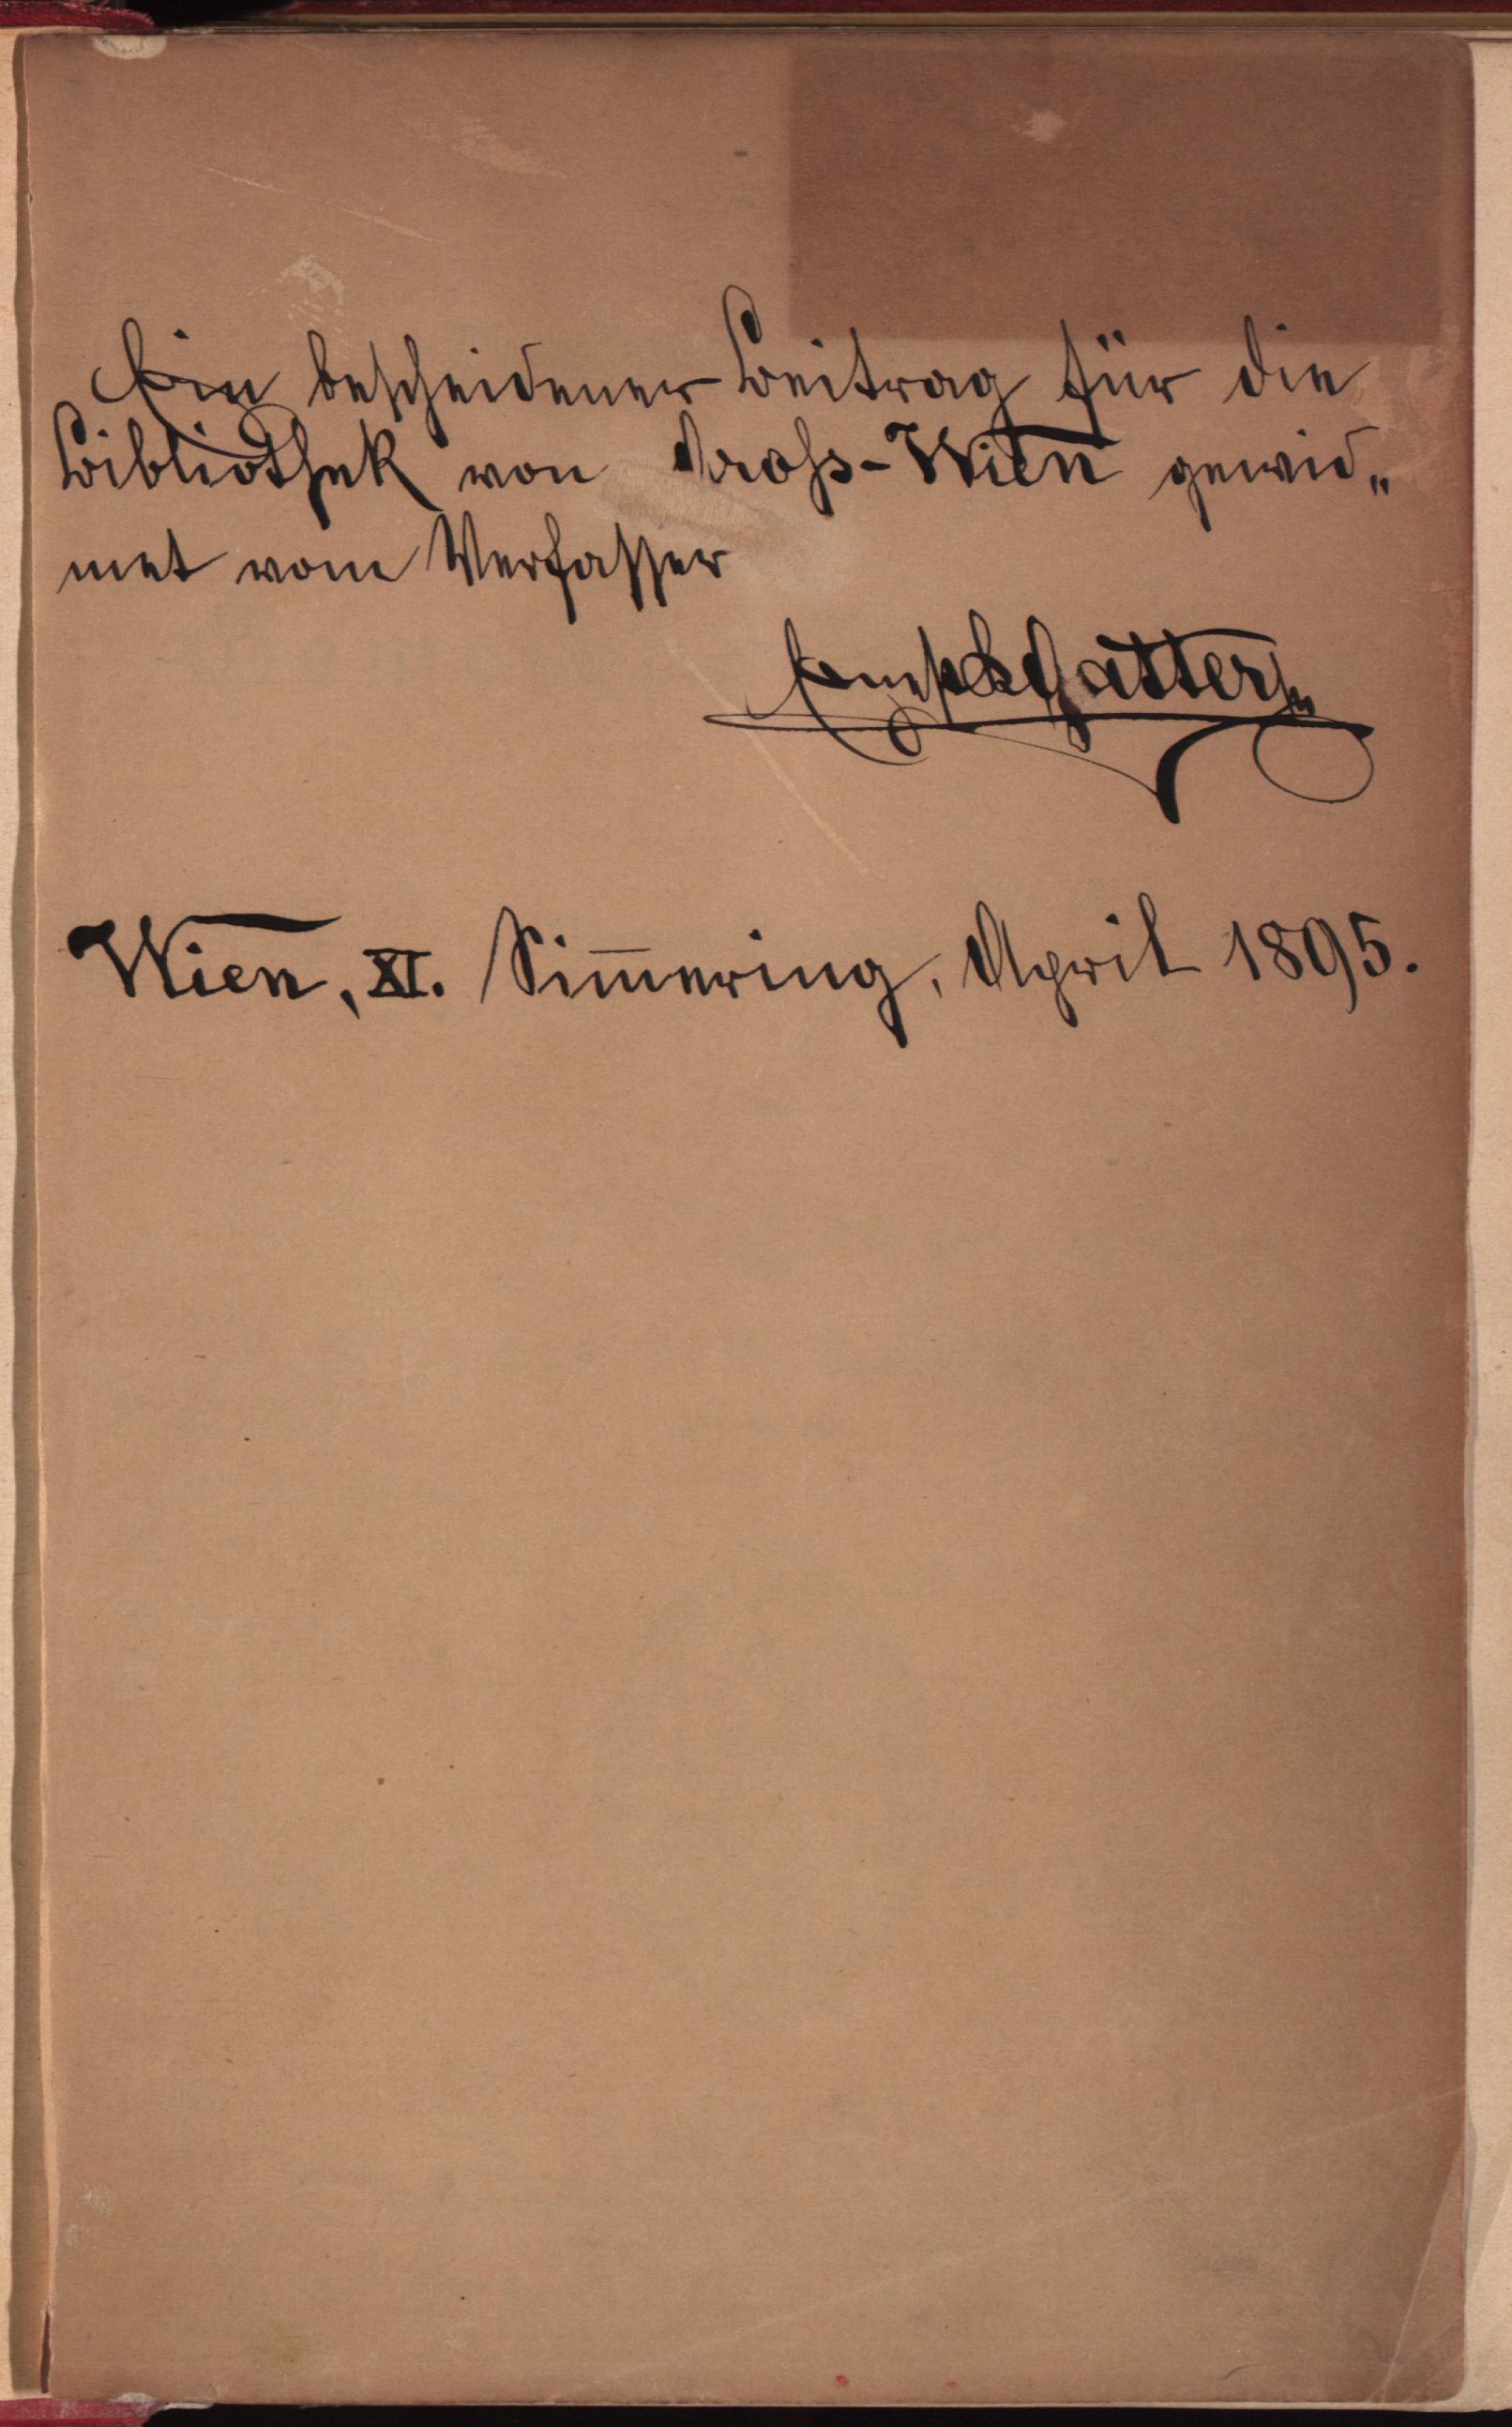 Ein bescheidener Beitrag für die
Bibliothek von Gross-Wien gewid„
met vom Verfasser
Wien, XI. Sim̅ering, April 1895.